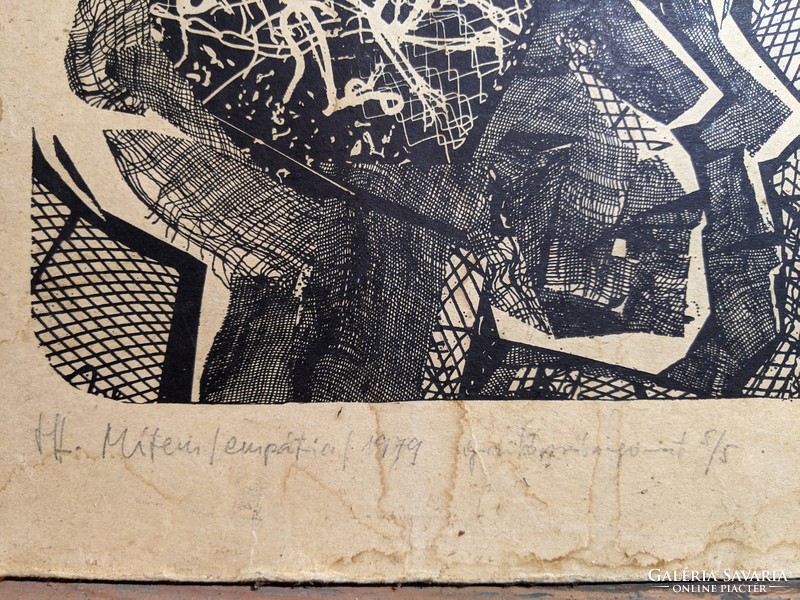 III. Mítem /empátia/ 1979 5/5
GALÉRIA SAVARIA
ONLINE PIACTÉR